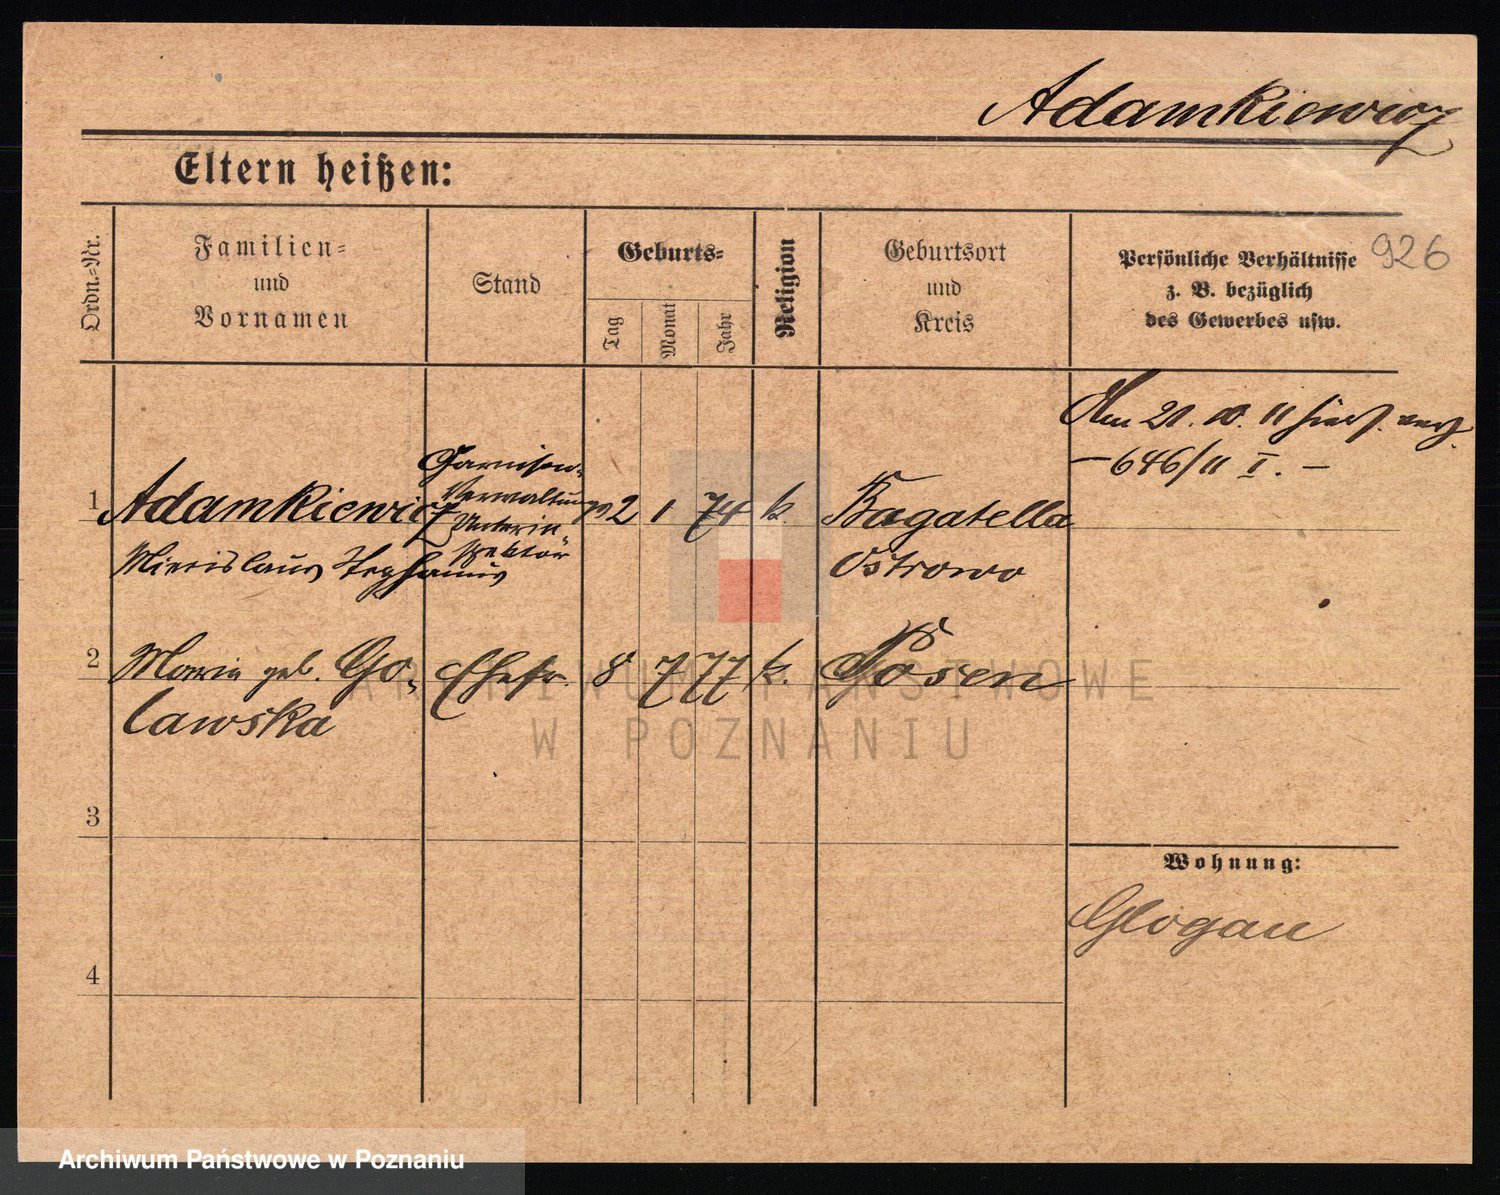 Adamkiewicz
Eltern heißen:
Ordn.-Nr.
Familien-
und
Vornamen
Stand
Geburts-
Tag
Monat
Jahr
Religion
Geburtsort
und
Kreis
Persönliche Verhältnisse
z. B. bezüglich
des Gewerbes usw.
926
Am 21. 10. 11 hierh. verz.
– 646/11 I. –
1
Adamkiewicz
Garnison-
Verwaltungs
Unterin-
spektor
2 1 74 k.
Bagatella
Ostrowo
2
Maria geb. Go-
lawska
Ehefr.
8 7 77 k.
Posen
3
4
Wohnung:
Glogau
ARCHIWUM PAŃSTWOWE
W POZNANIU
Archiwum Państwowe w Poznaniu